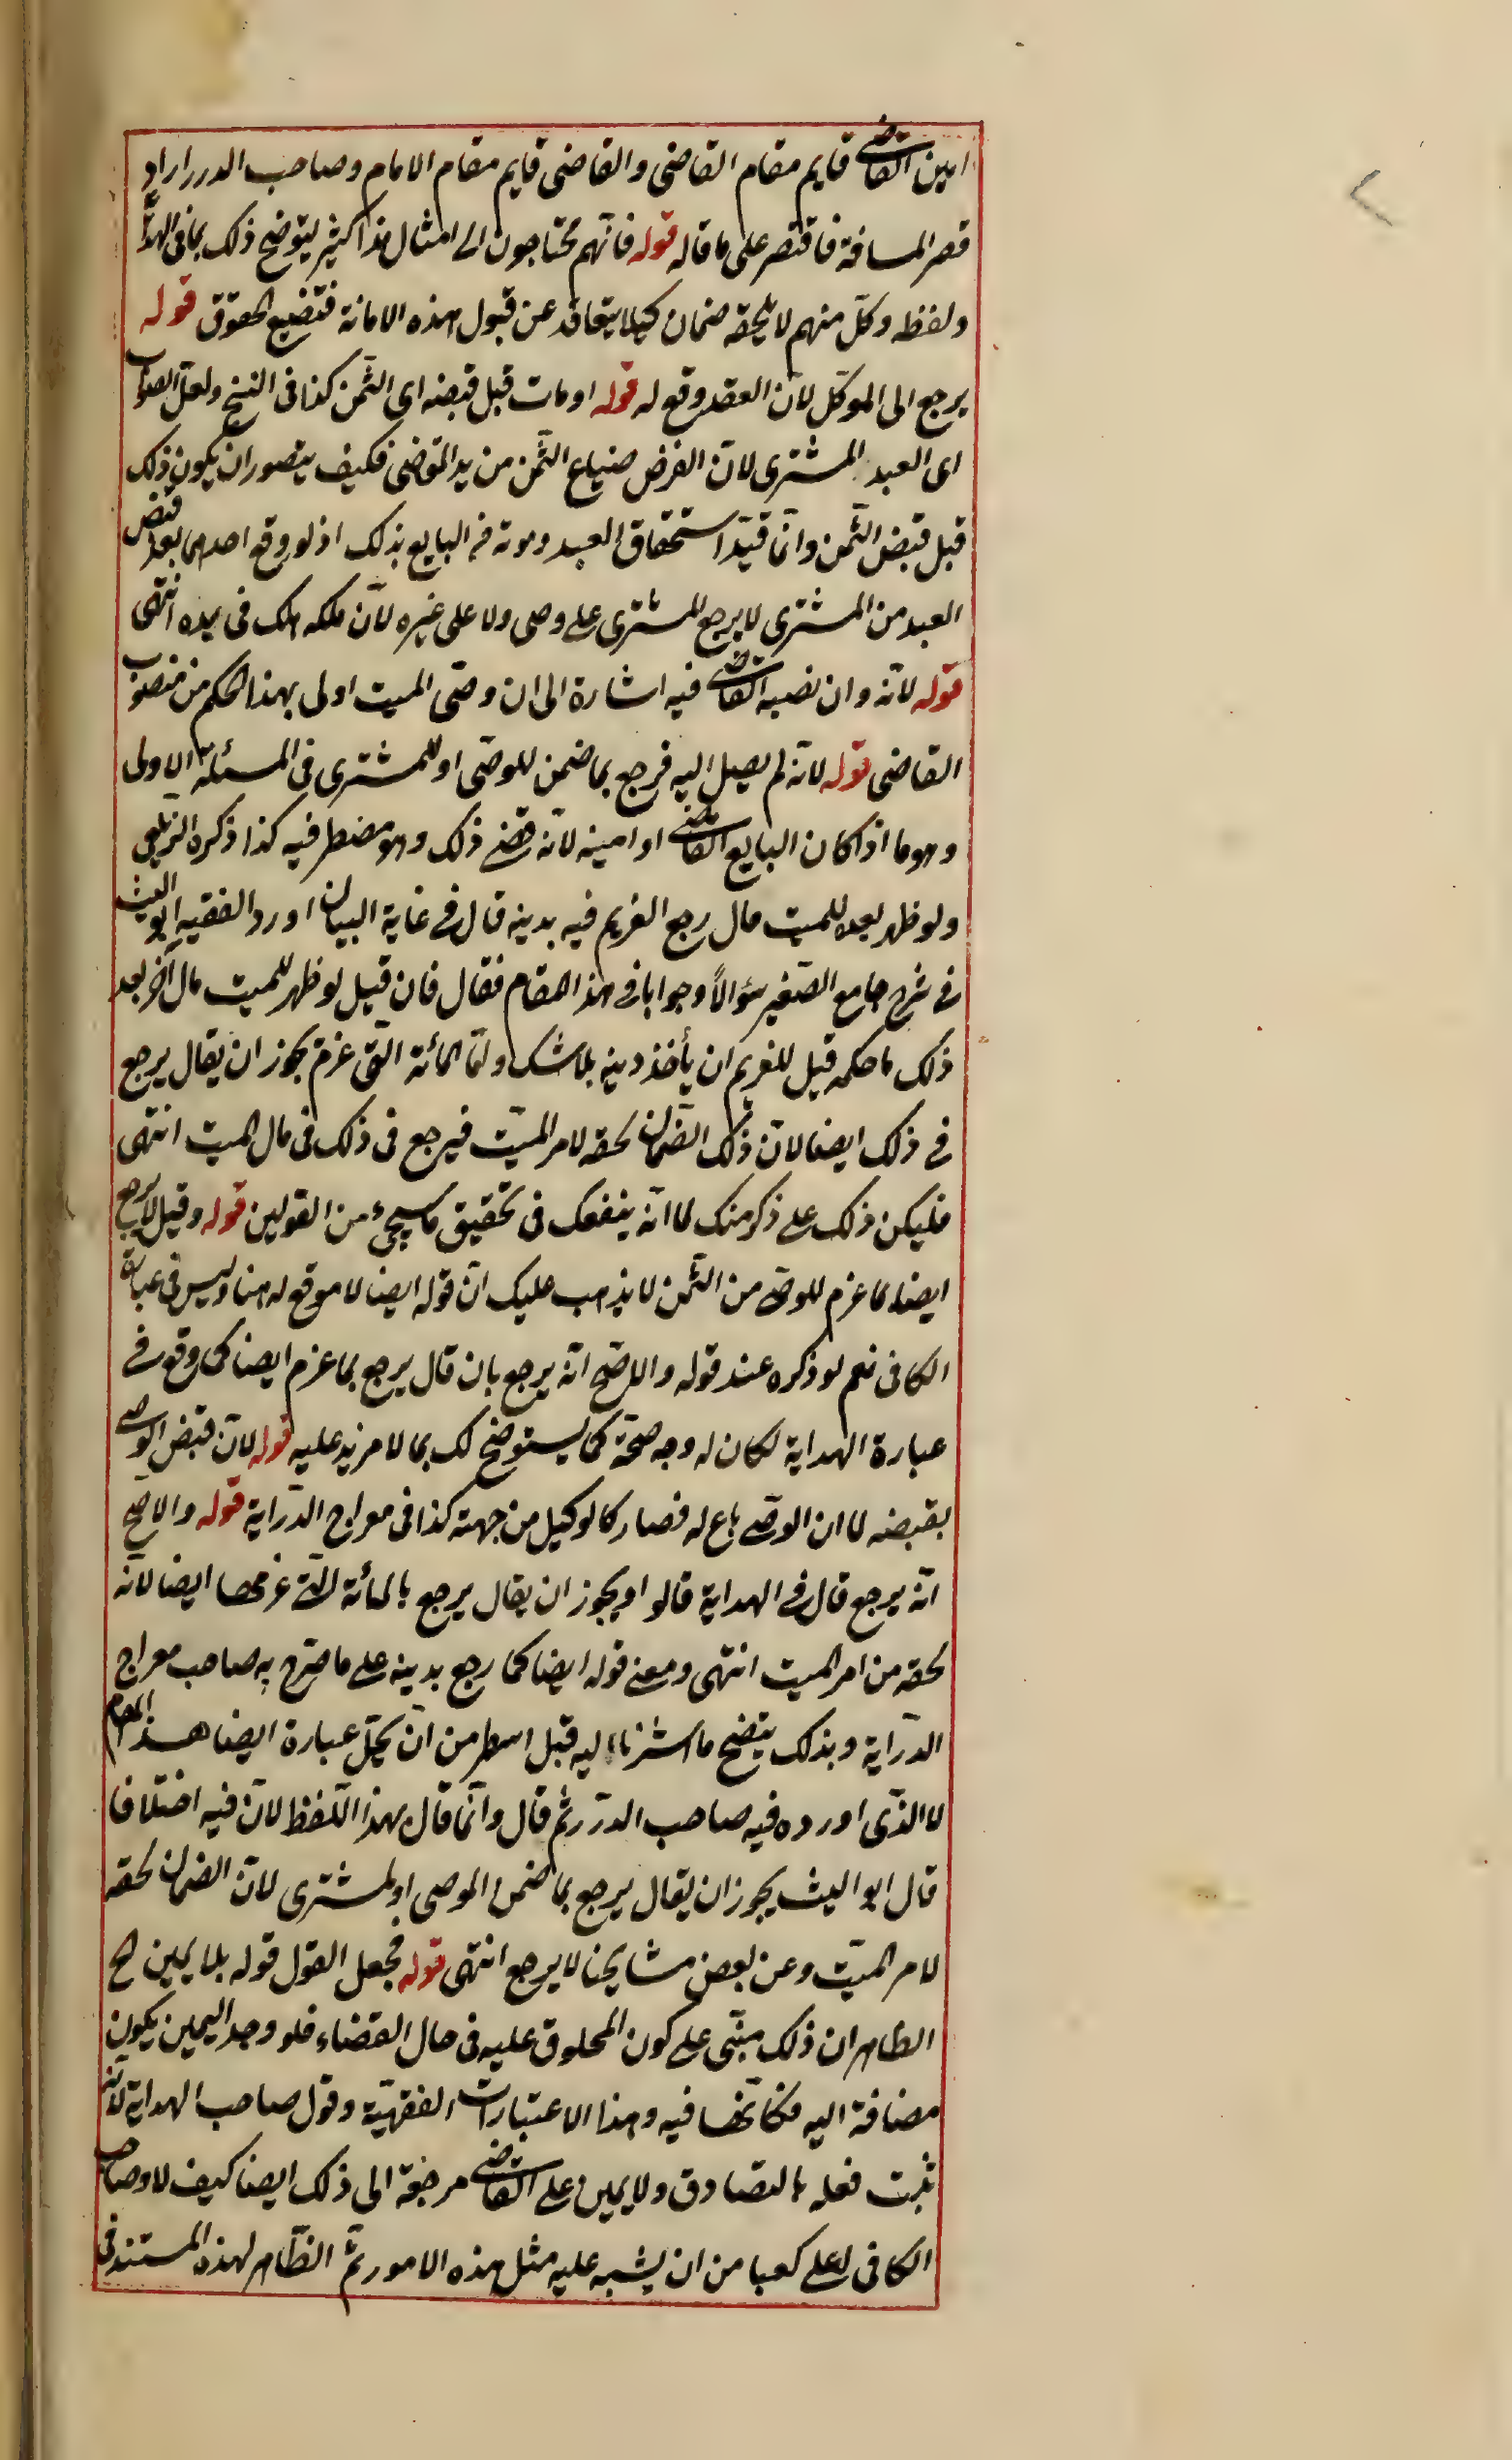 امين القاضى قايم مقام القاضى والقاضى قايم مقام الامام وصاحب الدرر اراد
قصر المسافة فاقتصر على ما قاله قوله فانهم محتاجون الى امثال هذا كثير يتوضح ذلك بما فى الهداية
ولفظ وكل منهم لا يلحقه ضمان كيلا يتقاعد عن قبول هذه الامانة فتضيع الحقوق قوله
يرجع الى الموكل لان العقد وقع له قوله او مات قبل قبضه اى الثمن كذا فى النسخ ولعل الصواب
اى العبد المشترى لان الفرض ضياع الثمن من يد القاضى فكيف يتصور ان يكون ذلك
قبل قبض الثمن وانما قيد استحقاق العبد وموته فى البايع بذلك اذ لو وقع احدهما بعد قبض
العبد من المشترى لا يرجع المشترى على وصى ولا على غيره لان ملكه هلك فى يده انتهى
قوله لانه وان نصبه القاضى فيه اشارة الى ان وصى الميت اولى بهذا الحكم من منصوب
القاضى قوله لانه لم يصل اليه فرجع بما ضمن للوصى او للمشترى فى المسئلة الاولى
وهو ما اذا كان البايع القاضى او امينه لانه قضى ذلك وهو مضطر فيه كذا ذكره الزيلعى
ولو ظهر بعده للميت مال رجع الغريم فيه بدينه قال فى غاية البيان اورد الفقيه ابو الليث
فى شرح جامع الصغير سؤالا وجوابا فى هذا المقام فقال فان قيل لو ظهر للميت مال آخر بعد
ذلك ما حكمه قيل للغريم ان يأخذ دينه بلا شك واما المائة التى غرم يجوز ان يقال يرجع
فى ذلك ايضا لان ذلك الضمان لحقه لامر الميت فيرجع فى ذلك فى مال الميت انتهى
فليكن ذلك على ذكر منك لما انه ينفعك فى تحقيق ما سيجئ من القولين قوله وقيل لا يرجع
ايضا بما غرم للوصى من الثمن لا يذهب عليك ان قوله ايضا لا موقع له هنا وليس فى عبارة
الكافى نعم لو ذكره عند قوله والاصح انه يرجع بان قال يرجع بما غرم ايضا كما وقع فى
عبارة الهداية لكان له وجه صحة كما يستوضح لك بما لا مزيد عليه قوله لان قبض الوصى
بقبضه لما ان الوصى باع له فصار كالوكيل من جهته كذا فى معراج الدراية قوله والاصح
انه يرجع قال فى الهداية قالوا ويجوز ان يقال يرجع بالمائة التى غرمها ايضا لانه
لحقه من امر الميت انتهى ومعنى قوله ايضا كما رجع بدينه على ما صرح به صاحب معراج
الدراية وبذلك يتضح ما اشرنا اليه قبل اسطر من ان محل عبارة ايضا هذا المقام
لا الذى اورده فيه صاحب الدرر ثم قال وانما قال بهذا اللفظ لان فيه اختلافا
قال ابو الليث يجوز ان يقال يرجع بما ضمن الموصى او المشترى لان الضمان لحقه
لامر الميت وعن بعض مشايخنا لا يرجع انتهى قوله فجعل القول قوله بلا يمين الخ
الظاهر ان ذلك مبنى على كون المحلوق عليه فى حال القضاء فلو وجد اليمين يكون
مضافة اليه فكانها فيه وهذا الاعتبارات الفقهية وقول صاحب الهداية لانه
ثبت فعله بالتصادق ولا يمين على القاضى مرجعه الى ذلك ايضا كيف لا وصاحب
الكافى اعلى كعبا من ان يشبه عليه مثل هذه الامور ثم الظاهر لهذه المستند فى